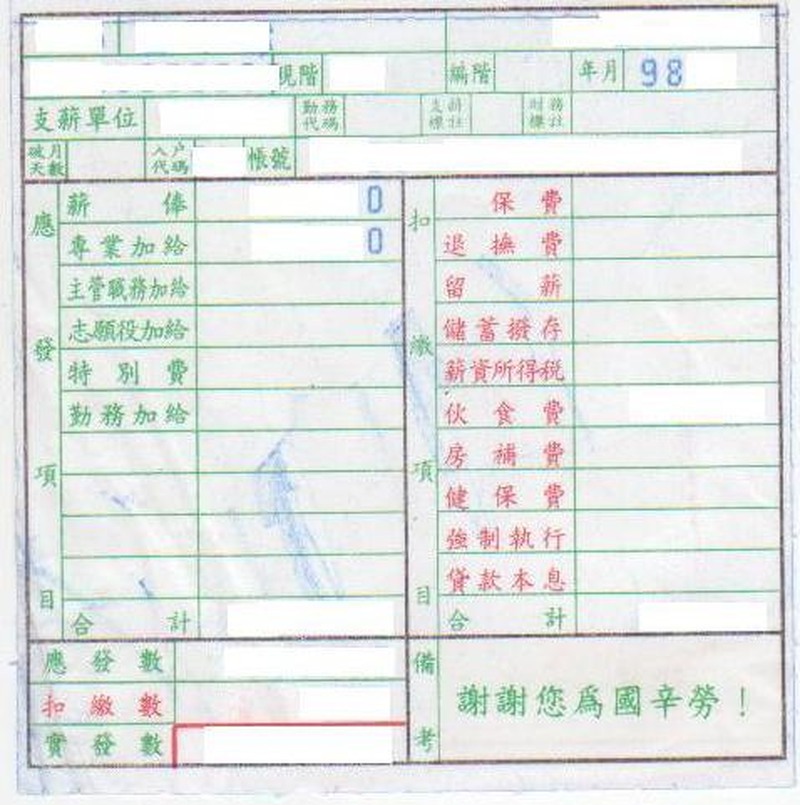 現階 編階 年月 98
支薪單位 勤務代碼 支薪標註 財務標註
破月天數 入戶代碼 帳號
應發項目 扣繳項目
薪俸 0 保費
專業加給 0 退撫費
主管職務加給 留薪
志願役加給 儲蓄撥存
特別費 薪資所得稅
勤務加給 伙食費
房補費
健保費
強制執行
貸款本息
合計 合計
應發數 備考
扣繳數 謝謝您爲國辛勞！
實發數